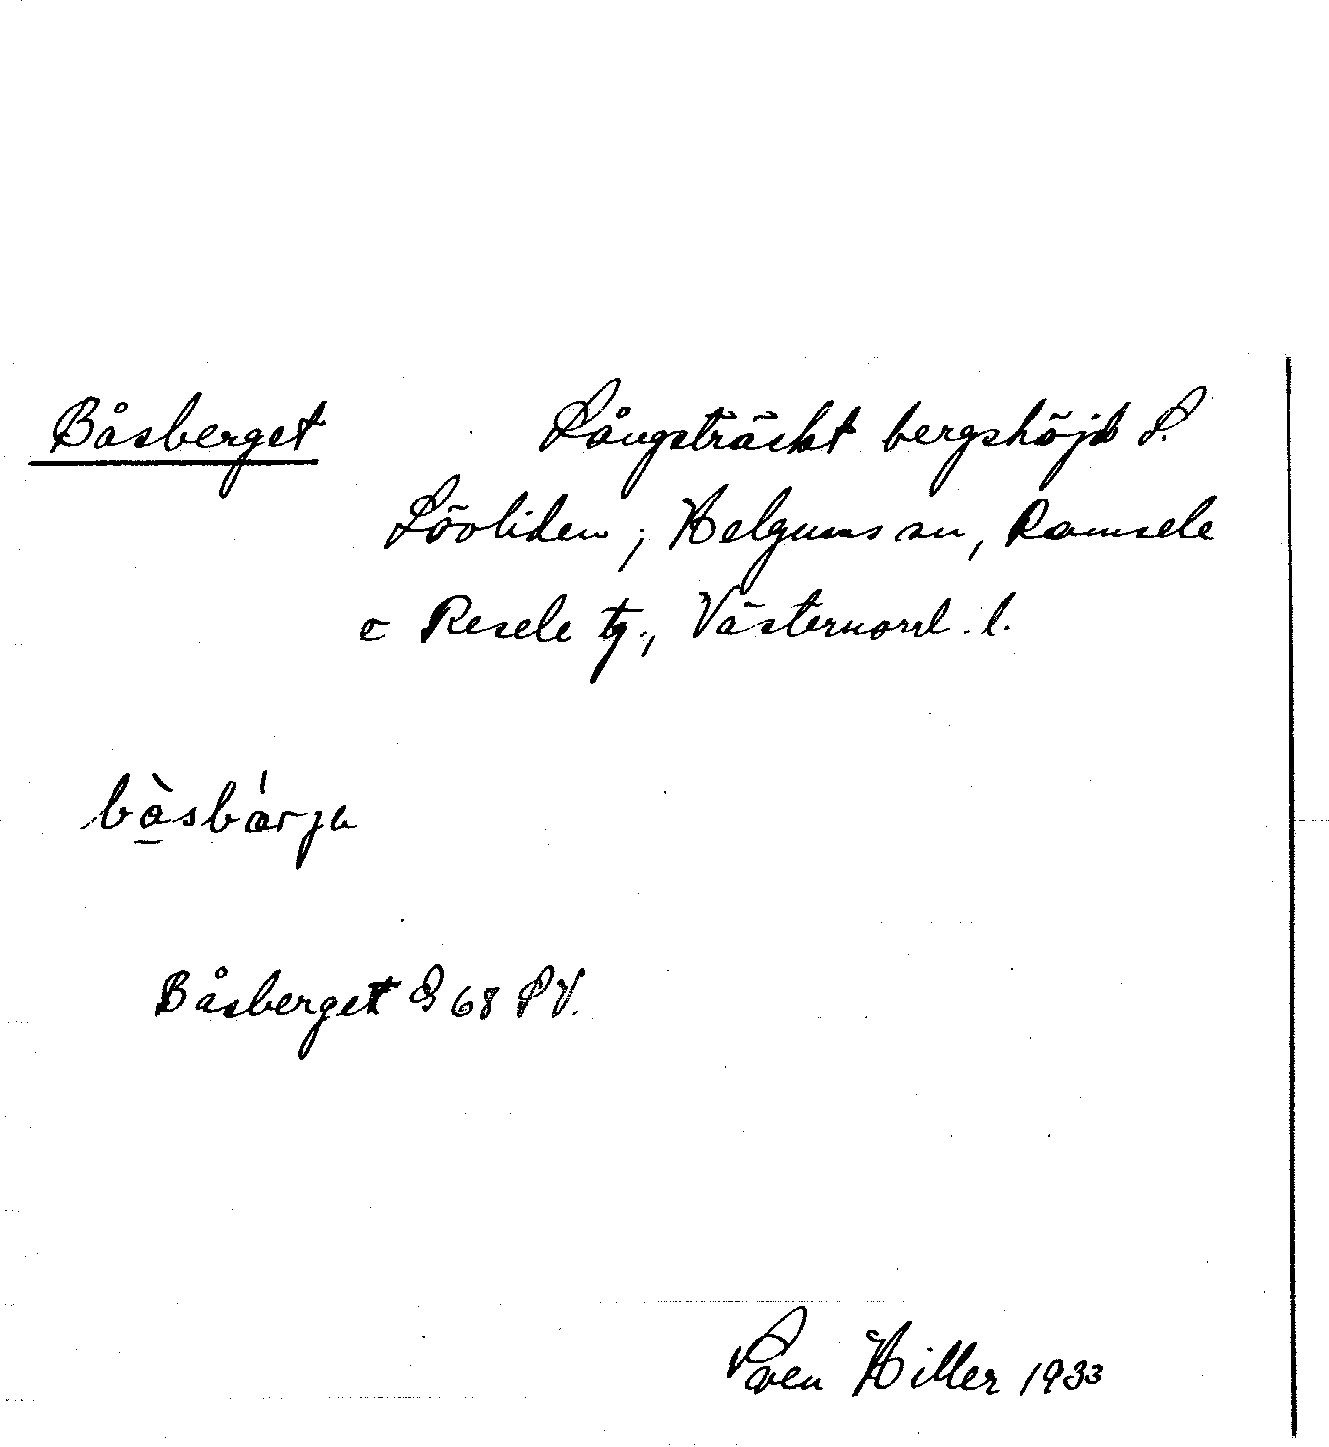 Båsberget Långsträckt bergshöjd S.
Lövliden; Helgums sn, Ramsele
o Resele tg., Västernorrl. l.
bå̀sbárja
Båsberget G 68 SV.
Sven Hiller 1933